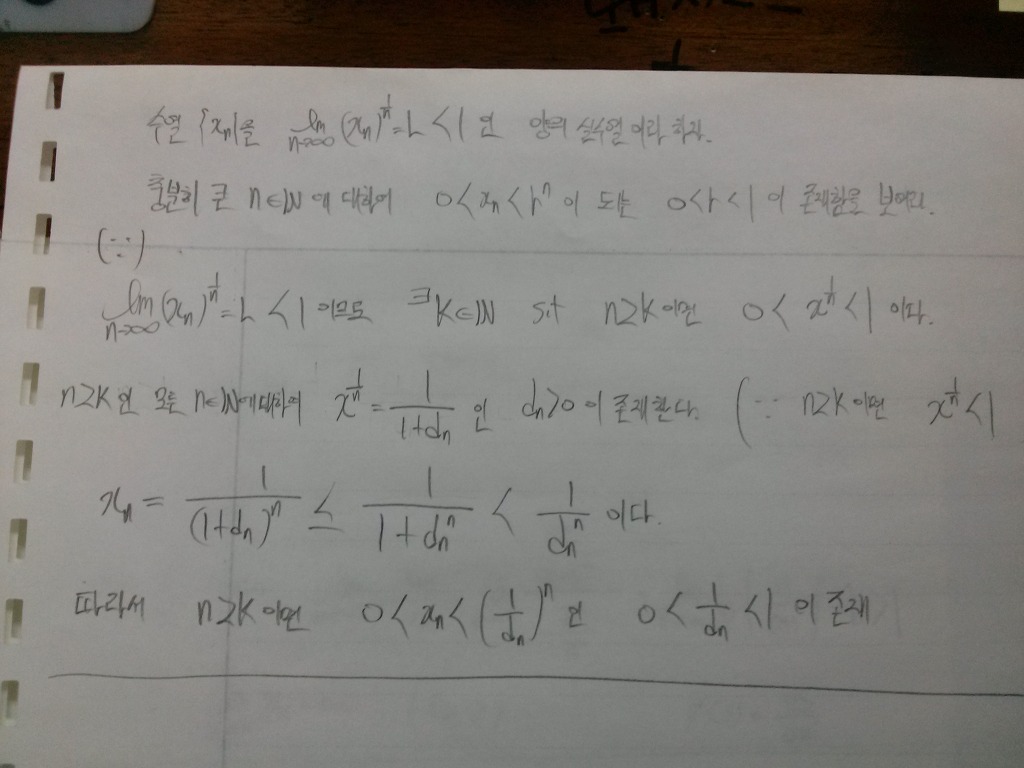 수열 {xₙ}을 lim_{n→∞} (xₙ)^{1/n} = L < 1 인 양의 실수열 이라 하자.
충분히 큰 n∈ℕ 에 대하여 0 < xₙ < rⁿ 이 되는 0 < r < 1 이 존재함을 보여라.
(∵)
lim_{n→∞} (xₙ)^{1/n} = L < 1 이므로 ∃K∈ℕ s.t n≥K 이면 0 < x^{1/n} < 1 이다.
n≥K 인 모든 n∈ℕ에 대하여 x^{1/n} = 1/(1+dₙ) 인 dₙ>0 이 존재한다. (∵ n≥K 이면 x^{1/n} < 1
xₙ = 1/(1+dₙ)ⁿ ≤ 1/(1+dₙⁿ) < 1/dₙⁿ 이다.
따라서 n≥K 이면 0 < xₙ < (1/dₙ)ⁿ 인 0 < 1/dₙ < 1 이 존재